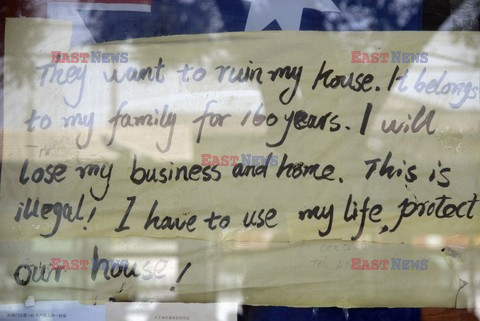 They want to ruin my house. It belongs
to my family for 160 years. I will
lose my business and home. This is
illegal! I have to use my life, protect
our house!
EASTNEWS
EASTNEWS
EASTNEWS
EASTNEWS
EASTNEWS
EASTNEWS
EASTNEWS
EASTNEWS